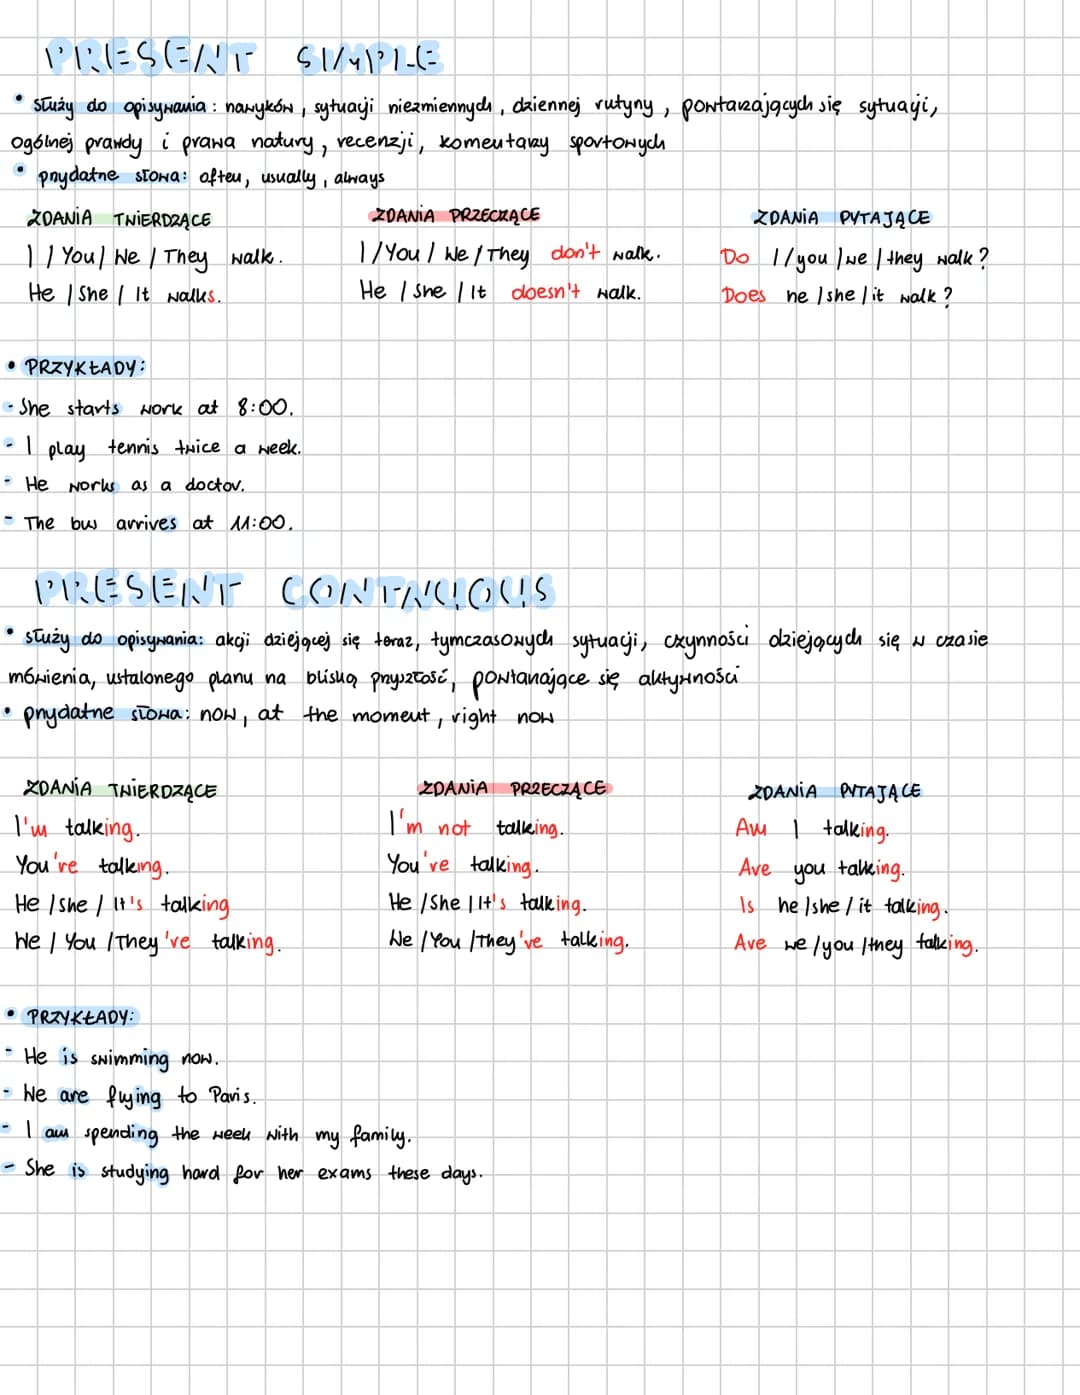 PRESENT SIMPLE
• służy do opisywania: nawyków, sytuacji niezmiennych, dziennej rutyny, powtarzających się sytuacji,
ogólnej prawdy i prawa natury, recenzji, komentarzy sportowych
• przydatne słowa: often, usually, always
ZDANIA TWIERDZĄCE ZDANIA PRZECZĄCE ZDANIA PYTAJĄCE
I / You / We / They walk. I / You / We / They don't walk. Do I / you / we / they walk?
He / She / It walks. He / She / It doesn't walk. Does he / she / it walk?
• PRZYKŁADY:
- She starts work at 8:00.
- I play tennis twice a week.
- He works as a doctor.
- The bus arrives at 11:00.
PRESENT CONTINUOUS
• służy do opisywania: akcji dziejącej się teraz, tymczasowych sytuacji, czynności dziejących się w czasie
mówienia, ustalonego planu na bliską przyszłość, powtarzające się aktywności
• przydatne słowa: now, at the moment, right now
ZDANIA TWIERDZĄCE ZDANIA PRZECZĄCE ZDANIA PYTAJĄCE
I'm talking. I'm not talking. Am I talking.
You're talking. You're talking. Are you talking.
He / She / It's talking He / She / It's talking. Is he / she / it talking.
We / You / They've talking. We / You / They've talking. Are we / you / they talking.
• PRZYKŁADY:
- He is swimming now.
- We are flying to Paris.
- I am spending the week with my family.
- She is studying hard for her exams these days.